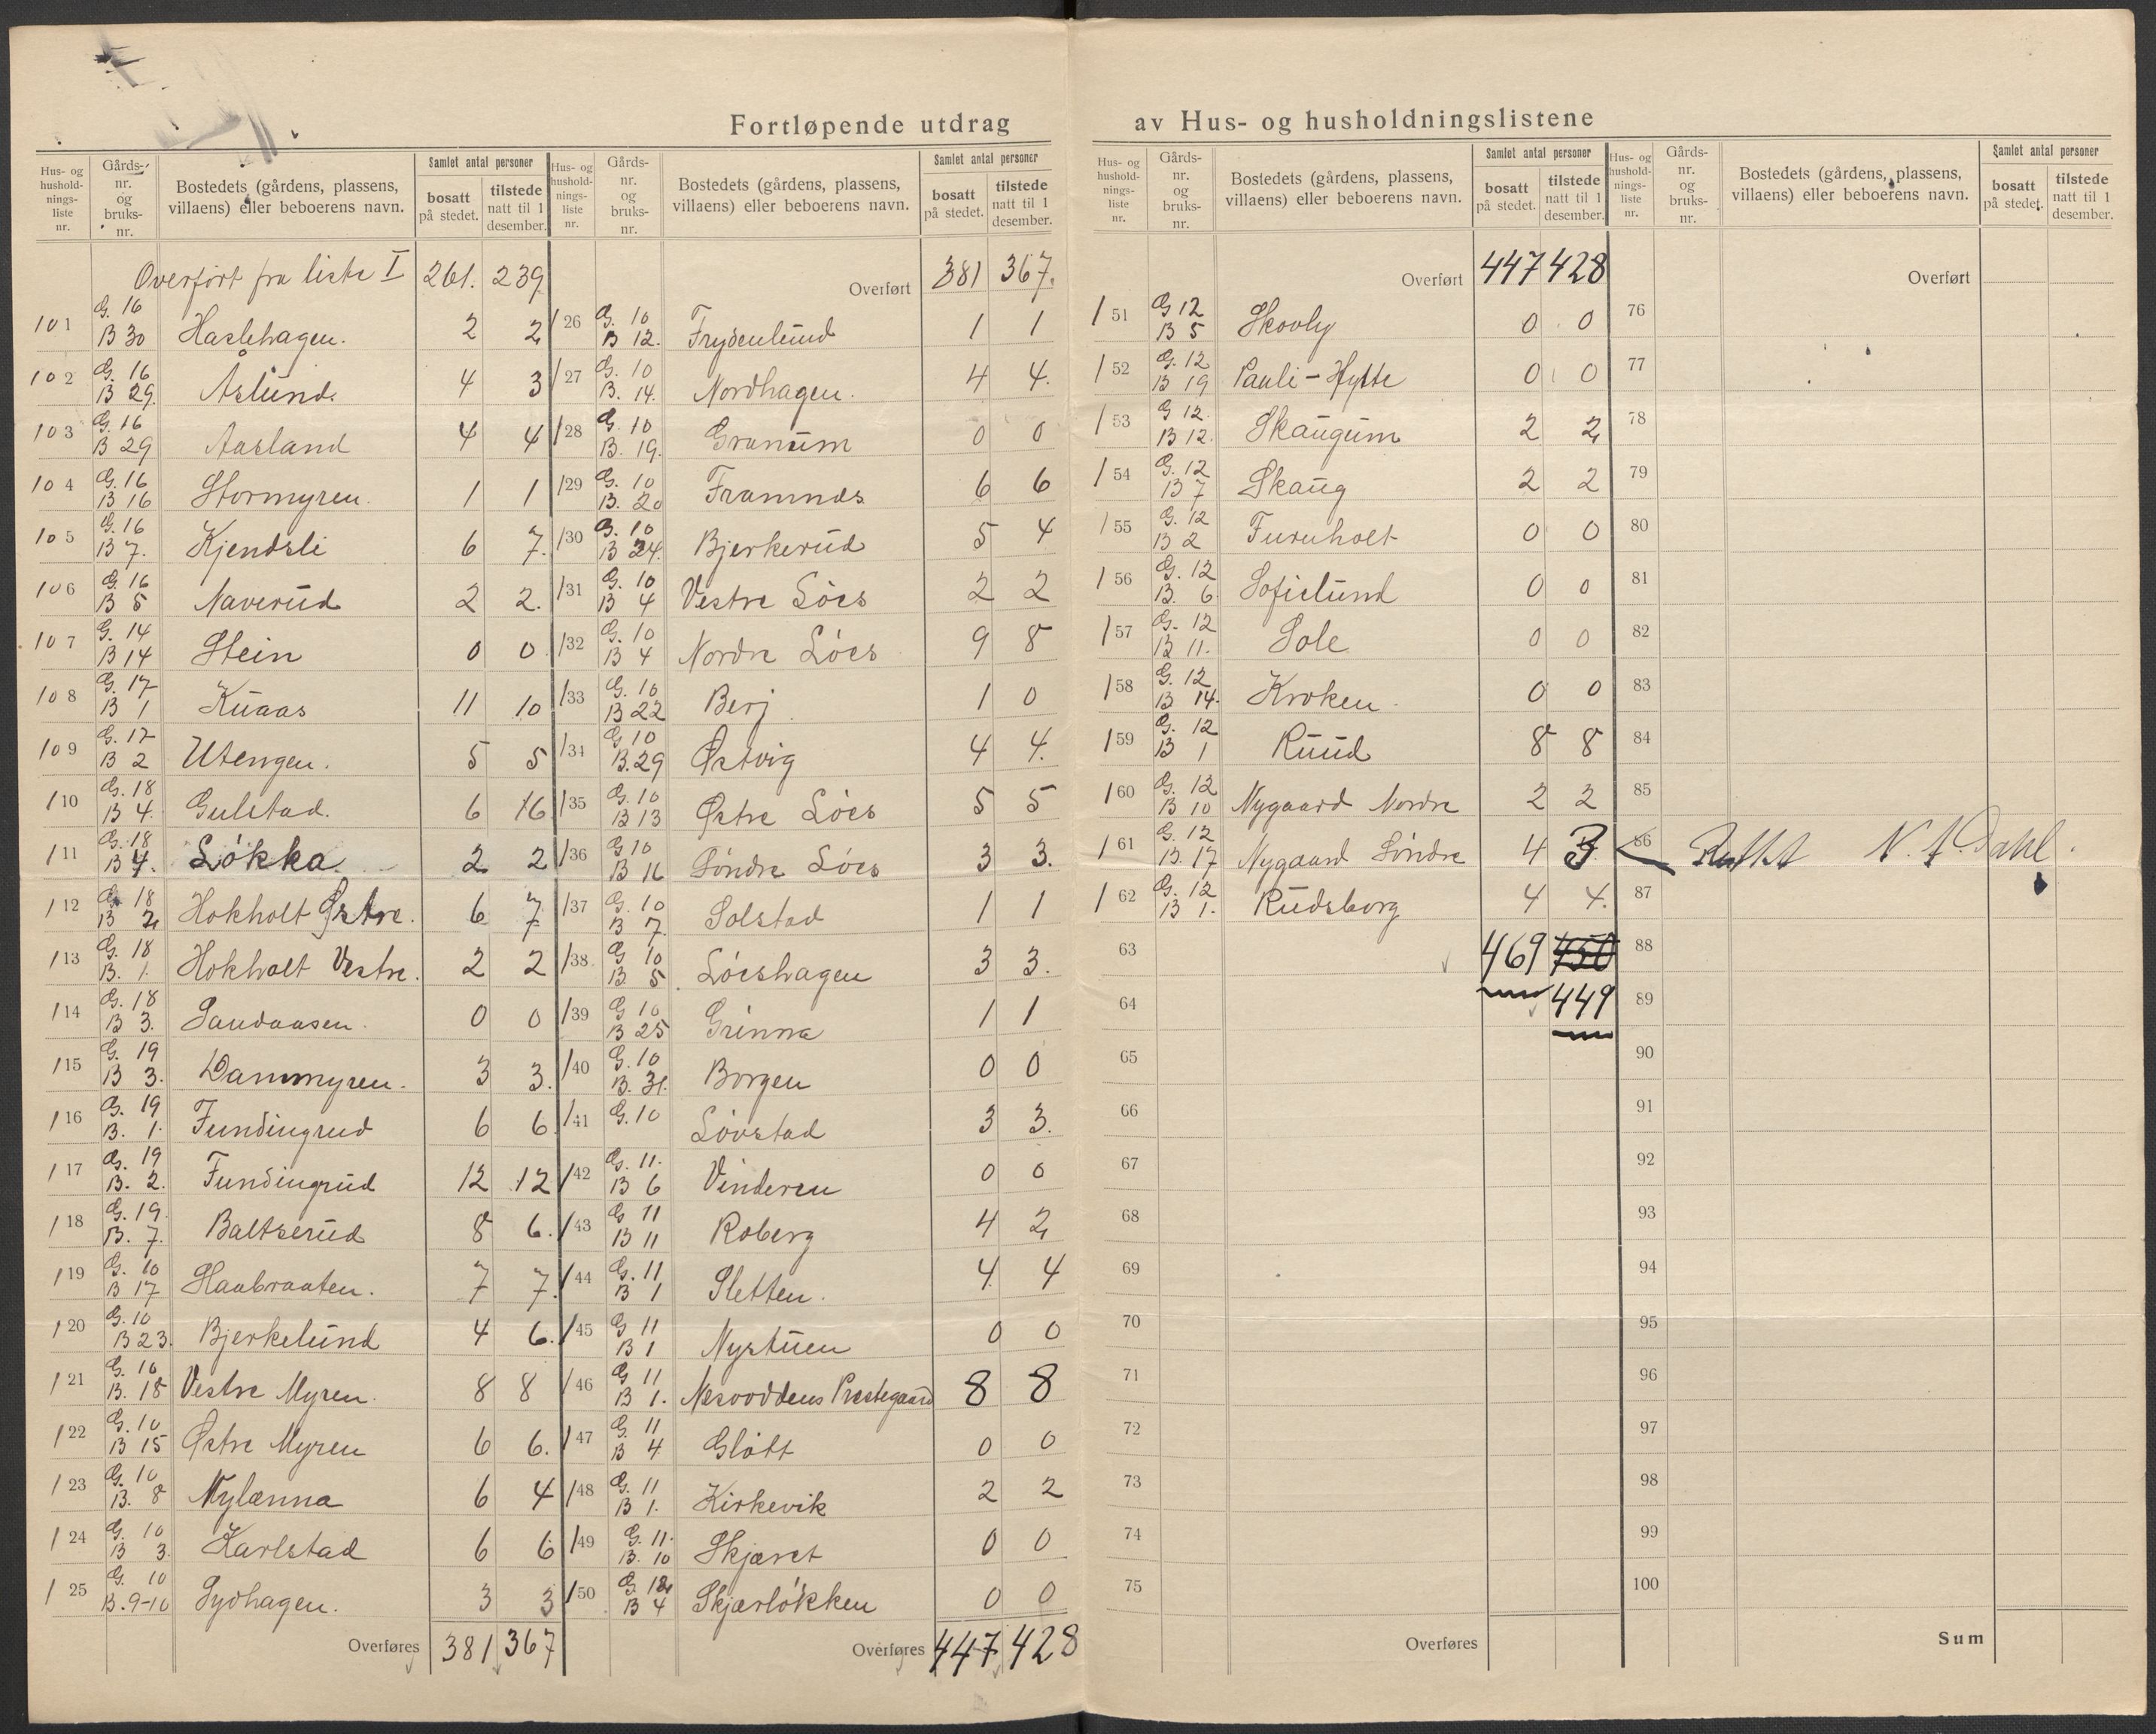 Fortløpende utdrag av Hus- og husholdningslistene
Hus- og husholdnings- liste nr. | Gårds- nr. og bruks- nr. | Bostedets (gårdens, plassens, villaens) eller beboerens navn. | Samlet antal personer | bosatt på stedet. | tilstede natt til 1 desember.
Overført fra liste I 261. 239
101 G. 16 B 30 Haslehagen. 2 2
102 G. 16 B 29. Åslund. 4 3
103 G. 16 B 29 Aasland 4 4
104 G. 16 B 16 Stormyren. 1 1
105 G. 16 B 7. Kjendsli 6 7.
106 G. 16 B 5 Naverud 2 2.
107 G. 14 B 14 Stein 0 0
108 G. 17 B 1 Kuaas 11 10
109 G. 17 B 2 Utengen. 5 5
110 G. 18 B 4. Gulstad. 6 6
111 G. 18 B 4. Løkka. 2 2
112 G. 18 B 2 Hokholt Østre. 6 7
113 G. 18 B. 1. Hokholt Vestre. 2 2
114 G. 18 B 3. Sandaasen. 0 0
115 G. 19 B 3. Dammyren. 3 3.
116 G. 19 B. 1. Fundingrud 6 6
117 G. 19 B. 2. Fundingrud 12 12
118 G. 19. B. 7. Baltserud 8 6.
119 G. 10 B 17 Haabraaten. 7 7.
120 G. 10 B 23. Bjerkelund 4 6.
121 G. 10 B. 18 Vestre Myren. 8 8
122 G. 10 B 15 Østre Myren 6 6.
123 G. 10 B. 8 Nylænna 6 4
124 G. 10 B 3. Karlstad 6 6
125 G. 10 B. 9-10 Sydhagen. 3 3
Overføres 381 367
Hus- og husholdnings- liste nr. | Gårds- nr. og bruks- nr. | Bostedets (gårdens, plassens, villaens) eller beboerens navn. | Samlet antal personer | bosatt på stedet. | tilstede natt til 1 desember.
Overført 381 367.
126 G. 10 B 12. Frydenlund 1 1
127 G. 10 B. 14. Nordhagen. 4 4.
128 G. 10 B. 19. Granum 0 0
129 G. 10 B. 20 Framnes 6 6
130 G. 10 B 24. Bjerkerud 5 4
131 G. 10 B 4 Vestre Løes 2 2
132 G. 10 B 4 Nordre Løes 9 8
133 G. 10 B 22 Berj 1 0
134 G 10 B. 29 Østvig 4 4.
135 G. 10 B 13 Østre Løes 5 5
136 G 10 B 16 Søndre Løes 3 3.
137 G. 10 B 7. Solstad 1 1
138. G 10 B. 5. Løeshagen 3 3.
139 G 10 B 25 Grinna 1 1
140 G. 10 B. 31. Borgen 0 0
141 G. 10 Løvstad 3 3.
142 G. 11. B 6 Vinderen 0 0
143 G 11 B 11 Roberg 4 2
144 G. 11 B 1 Sletten. 4 4
145 G 11 B 1 Nystuen 0 0
146 G 11 B 1. Nesoddens Prestegaard 8 8
147 G. 11 B 4 Gløtt 0 0
148 G. 11 B 1. Kirkevik 2 2
149 G. 11. B. 10 Skjæret 0 0
150 G. 12 B 4 Skjærløkken 0 0
Overføres 447 428
Hus- og husholdnings- liste nr. | Gårds- nr. og bruks- nr. | Bostedets (gårdens, plassens, villaens) eller beboerens navn. | Samlet antal personer | bosatt på stedet. | tilstede natt til 1 desember.
Overført 447 428
151 G 12 B 5 Skovly 0 0
152 G. 12 B 19 Pauli-Hytte 0 0
153 G 12. B 12. Skaugum 2 2
154 G. 12 B 7 Skaug 2 2
155 G. 12 B 2 Furuholt 0 0
156 G. 12 B. 6 Sofielund 0 0
157 G. 12 B 11. Sole 0 0
158 G. 12 B 14. Kroken. 0 0
159 G. 12 B 1 Ruud 8 8
160 G. 12 B 10 Nygaard Nordre 2 2
161 G. 12 B. 17 Nygaard Søndre 4 3
162 G. 12 B 1. Rudsborg 4 4.
63 469 450
64 449
65
66
67
68
69
70
71
72
73
74
75
Overføres
Hus- og husholdnings- liste nr. | Gårds- nr. og bruks- nr. | Bostedets (gårdens, plassens, villaens) eller beboerens navn. | Samlet antal personer | bosatt på stedet. | tilstede natt til 1 desember.
Overført
76
77
78
79
80
81
82
83
84
85
86 N. A. Dahl.
87
88
89
90
91
92
93
94
95
96
97
98
99
100
Sum